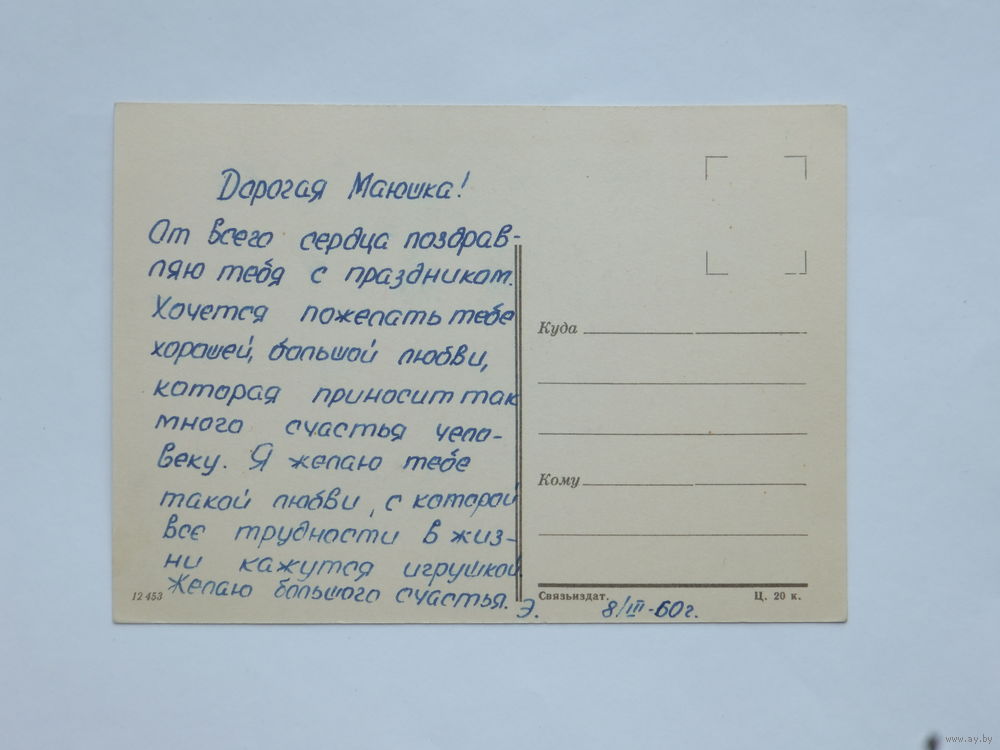 Дорогая Маюшка!
От всего сердца поздрав-
ляю тебя с праздником.
Хочется пожелать тебе
хорошей, большой любви,
которая приносит так
много счастья чело-
веку. Я желаю тебе
такой любви, с которой
все трудности в жиз-
ни кажутся игрушкой
Желаю большого счастья.
Э. 8/III-60г.
12 453
Куда
Кому
Связьиздат. Ц. 20 к.
www.ay.by